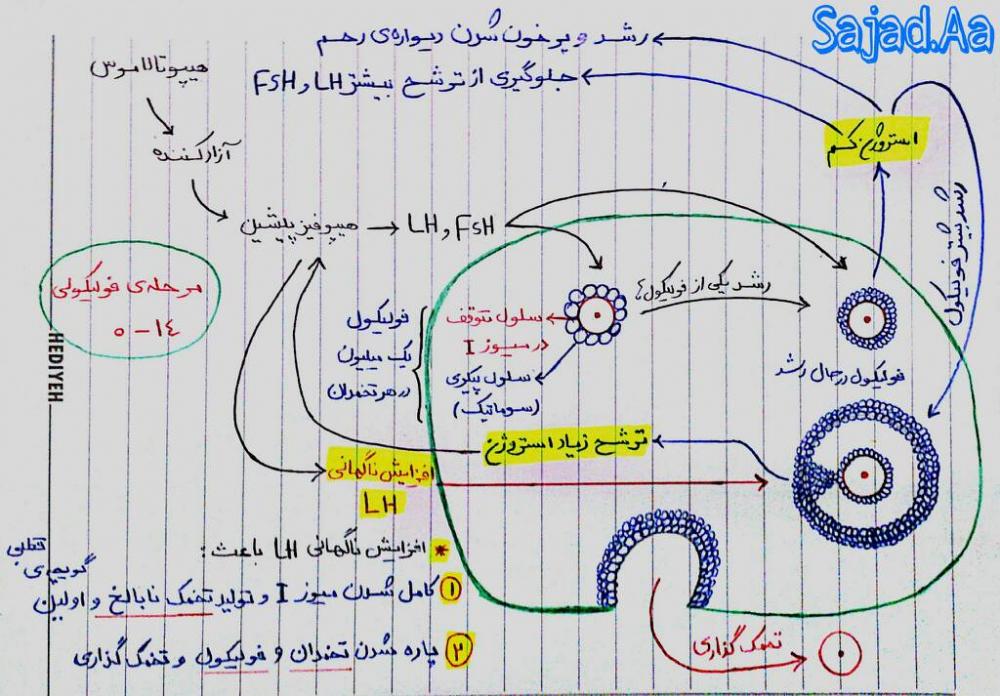 Sajad.Aa
رشد و پرخون شدن دیواره‌ی رحم
جلوگیری از ترشح بیشتر LH و FSH
هیپوتالاموس
آزادکننده
استروژن کم
هیپوفیز پیشین
LH, FSH
رشد بیشتر فولیکول
مرحله‌ی فولیکولی
۰ - ۱۴
رشد یکی از فولیکول‌ها
فولیکول
یک میلیون
در هر تخمدان
سلول متوقف
در میوز I
سلول پیکری
(سوماتیک)
فولیکول در حال رشد
ترشح زیاد استروژن
افزایش ناگهانی
LH
HEDIYEH
* افزایش ناگهانی LH باعث:
۱ کامل شدن میوز I و تولید تخمک نابالغ و اولین گویچه‌ی قطبی
۲ پاره شدن تخمدان و فولیکول و تخمک گذاری
تخمک گذاری